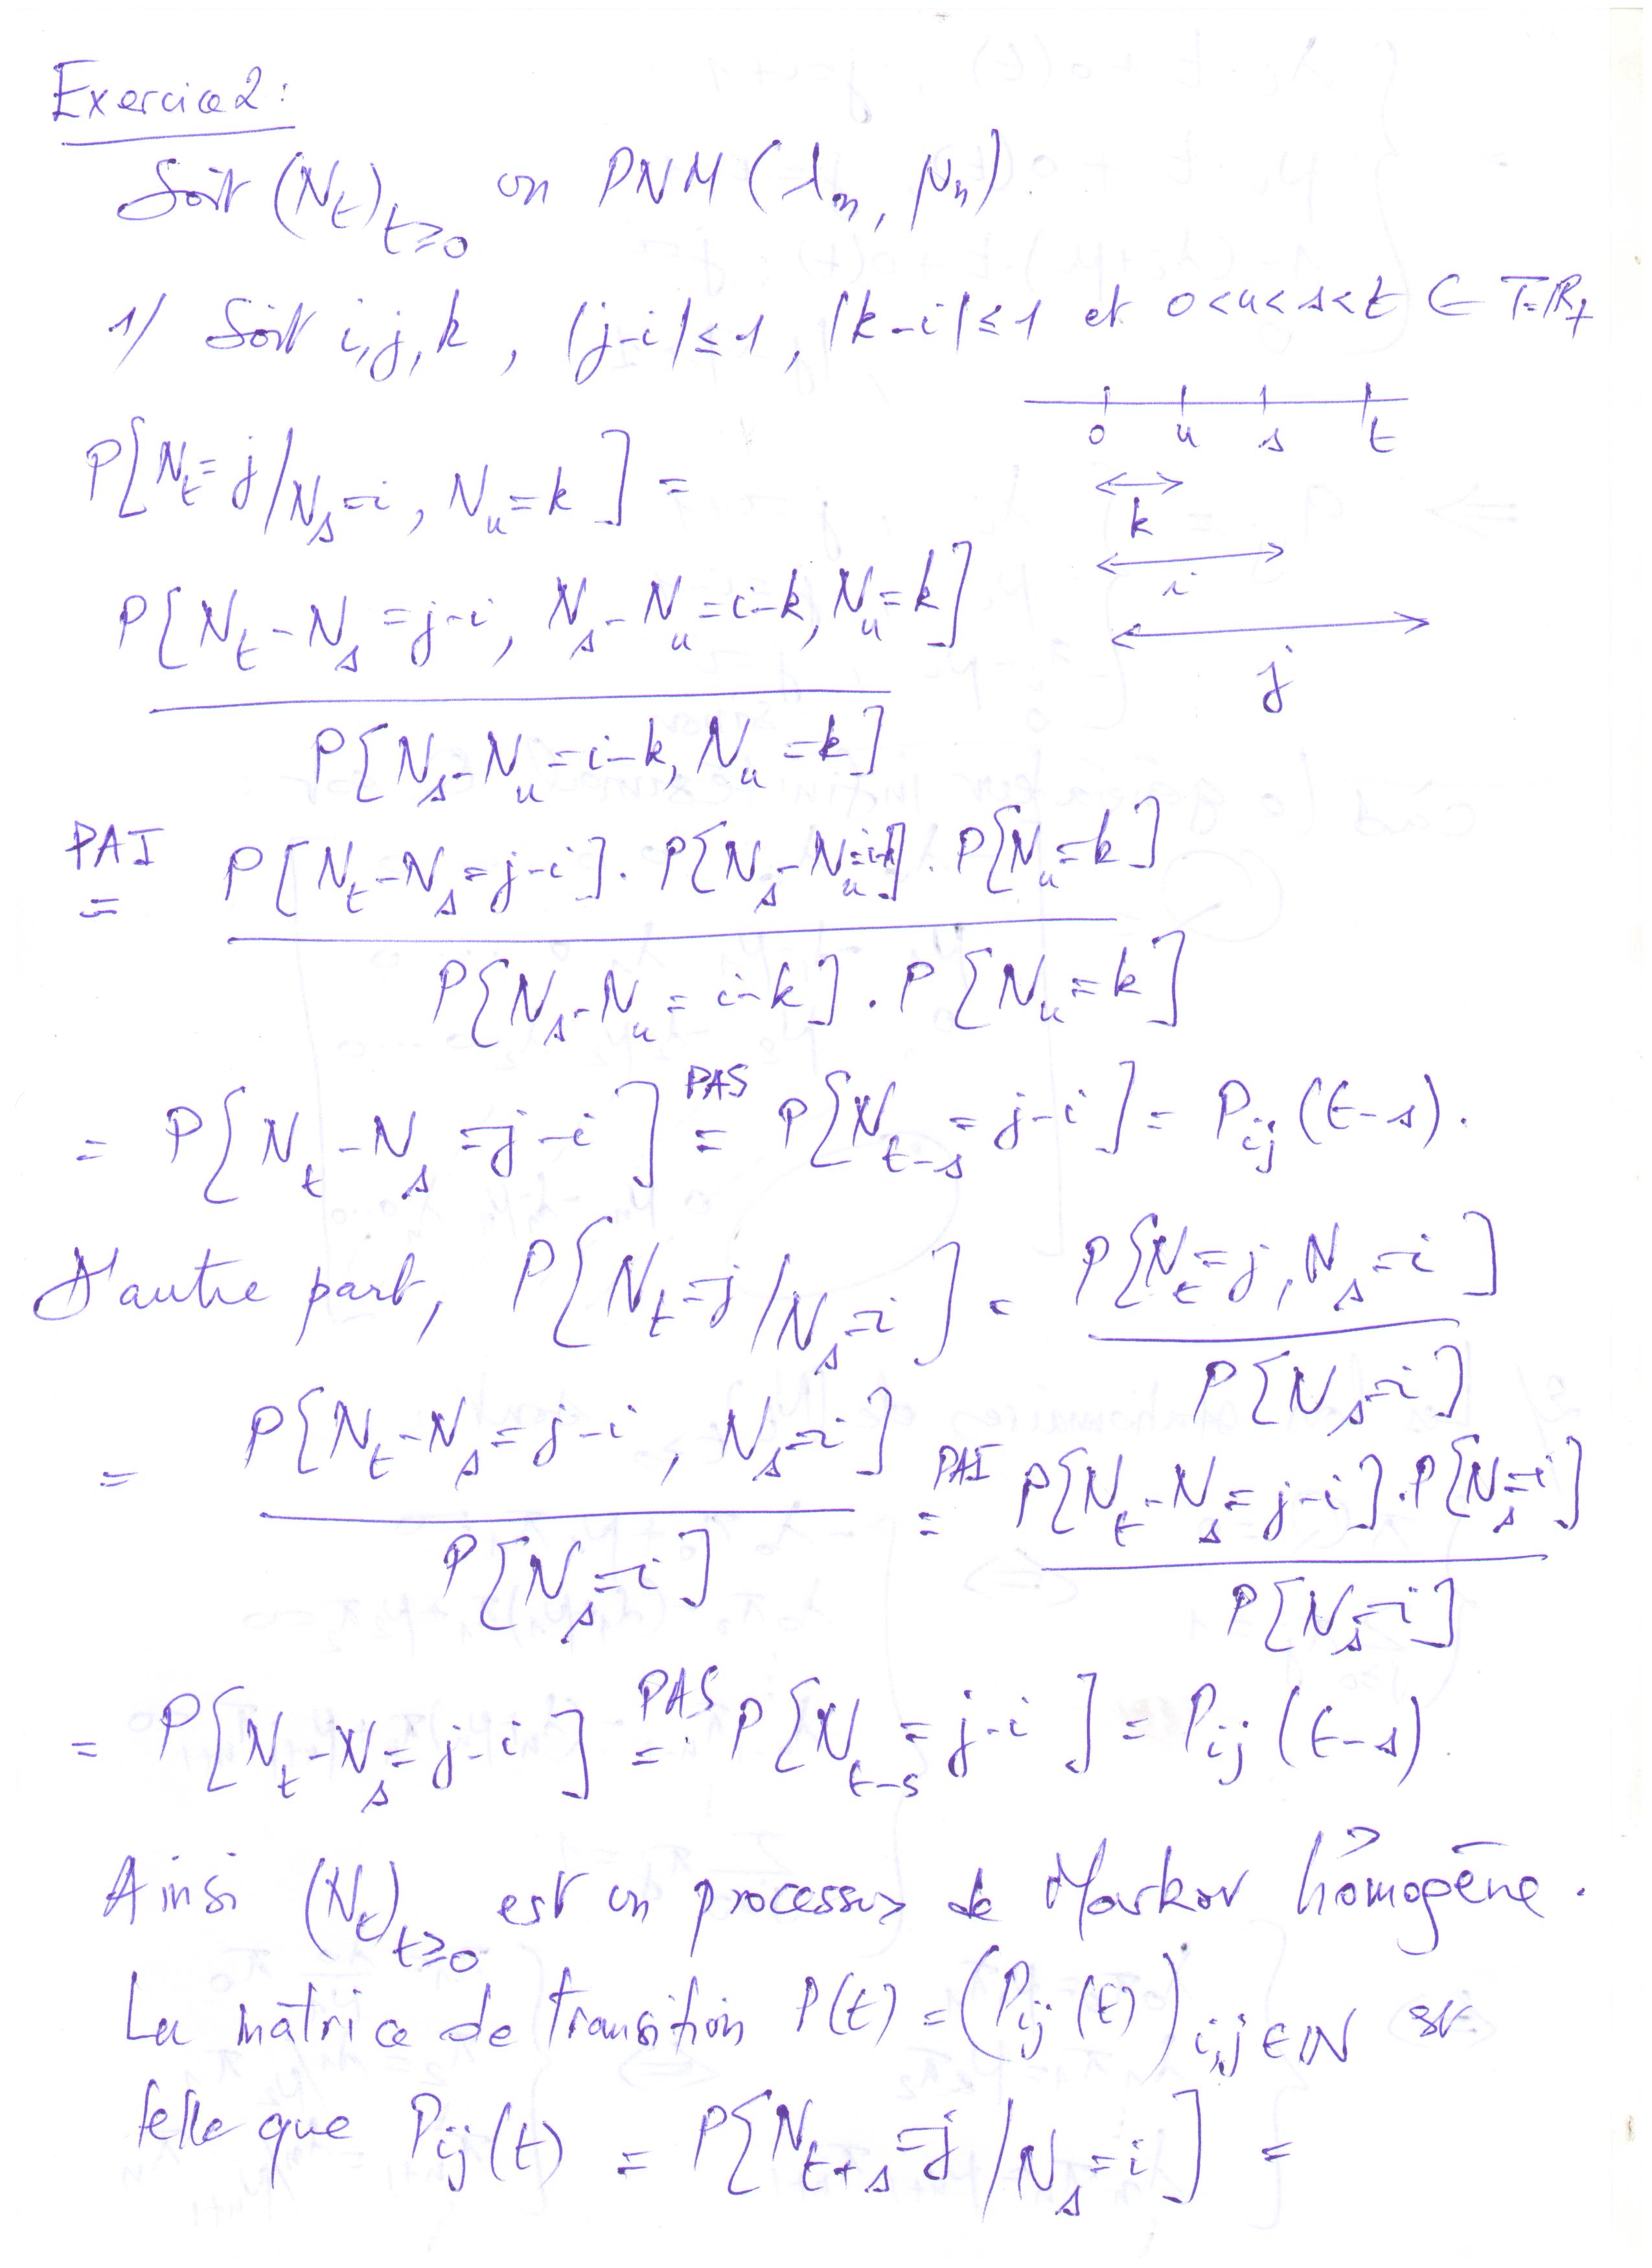 Exercice 2 :
Soit (N_t)_{t≥0} un PNM (λ_n, μ_n).
1/ Soit i,j,k , |j-i| ≤ 1 , |k-i| ≤ 1 et 0<u<s<t ∈ T=ℝ_+
0 u s t
P[N_t = j / N_s = i , N_u = k] =
k
P[N_t - N_s = j-i, N_s - N_u = i-k, N_u = k]
i
j
P[N_s - N_u = i-k, N_u = k]
PAI
= P[N_t - N_s = j-i] . P[N_s - N_u = i-k] . P[N_u = k]
P[N_s - N_u = i-k] . P[N_u = k]
= P[N_t - N_s = j-i] PAS = P[N_{t-s} = j-i] = P_{ij}(t-s).
D'autre part, P[N_t = j / N_s = i] = P[N_t = j, N_s = i]
P[N_s = i]
= P[N_t - N_s = j-i , N_s = i] PAI = P[N_t - N_s = j-i] . P[N_s = i]
P[N_s = i] P[N_s = i]
= P[N_t - N_s = j-i] PAS = P[N_{t-s} = j-i] = P_{ij}(t-s).
Ainsi (N_t)_{t≥0} est un processus de Markov homogène.
La matrice de transition P(t) = (P_{ij}(t))_{i,j∈ℕ} est
telle que P_{ij}(t) = P[N_{t+s} = j / N_s = i] =